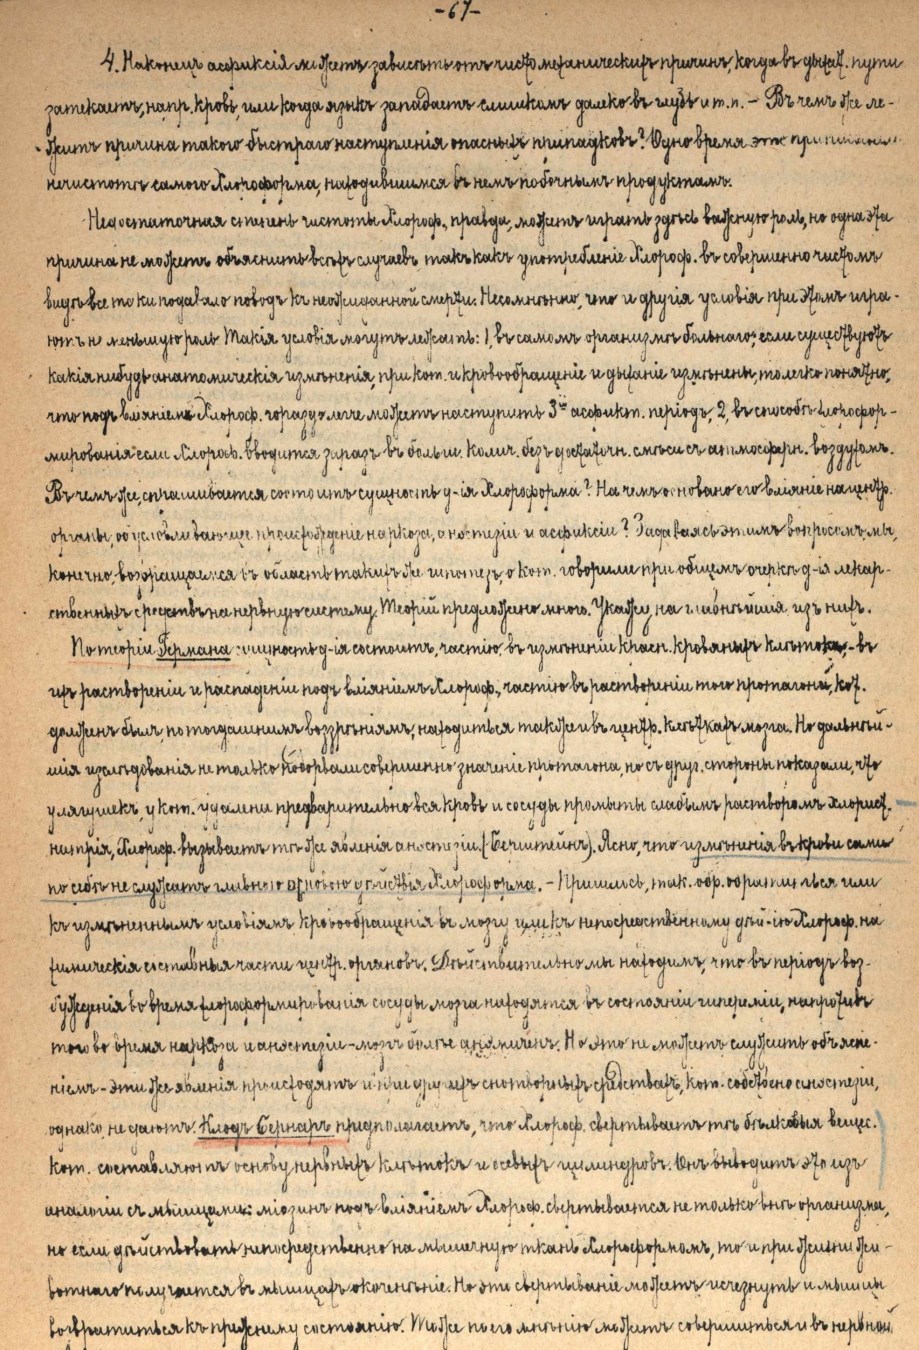 -67-
4. Наконецъ асфиксія можетъ зависѣть отъ чисто механическихъ причинъ, когда въ дыхат. пути
затекаетъ, напр. кровь, или когда языкъ западаетъ слишкомъ далеко въ глубь и т. п. – Въ чемъ же ле-
житъ причина такого быстраго наступленія опасныхъ припадковъ? Одно время это приписывали
нечистотѣ самого Хлороформа, находившимся въ немъ побочнымъ продуктамъ.
Недостаточная степень чистоты Хлороф., правда, можетъ играть здѣсь важную роль, но одна эта
причина не можетъ объяснить всѣхъ случаевъ такъ какъ употребленіе Хлороф. въ совершенно чистомъ
видѣ все таки подавало поводъ къ неожиданной смерти. Несомнѣнно, что и другія условія при этомъ игра-
ютъ не меньшую роль Такія условія могутъ лежать: 1, въ самомъ организмѣ больнаго; если существуютъ
какія нибудь анатомическія измѣненія, при кот. и кровообращеніе и дыханіе измѣнены, то легко понятно,
что подъ вліяніемъ Хлороф. гораздо легче можетъ наступить 3ій асфикт. періодъ, 2, въ способѣ Хлорофор-
мированія если Хлороф. вводится заразъ въ больш. колич. безъ достаточн. смѣси съ атмосферн. воздухомъ.
Въ чемъ же, спрашивается состоитъ сущность д-ія Хлороформа? На чемъ основано его вліяніе на центр.
органы, обусловливающее происхожденіе наркоза, анэстезіи и асфиксіи? Задаваясь этимъ вопросомъ, мы,
конечно, возвращаемся въ область такихъ же гипотезъ, о кот. говорили при общемъ очеркѣ д-ія лекар-
ственныхъ средствъ на нервную систему. Теорій предложено много. Укажу, на главнѣйшія изъ нихъ.
По теоріи Германа сущность д-ія состоитъ, частію, въ измѣненіи красн. кровяныхъ клѣтокъ, – въ
ихъ раствореніи и распаденіи подъ вліяніемъ Хлороф., частію въ раствореніи того протагона, кот.
долженъ былъ, по тогдашнимъ воззрѣніямъ, находиться также и въ центр. клѣткахъ мозга. Но дальнѣй-
шія изслѣдованія не только подорвали совершенно значеніе протагона, но съ друг. стороны показали, что
у лягушекъ, у кот. удалени предварительно вся кровь и сосуды промыты слабымъ растворомъ хлорист.
натрія, Хлороф. вызываетъ тѣ же явленія анэстезіи (Бернштейнъ). Ясно, что измѣненія въ крови сами
по себѣ не служатъ главною основою дѣйствія Хлороформа. – Пришлось, так. обр. обратиться или
къ измѣненнымъ условіямъ кровообращенія въ мозгу или къ непосредственному дѣй-ію Хлороф. на
химическія составныя части центр. органовъ. Дѣйствительно мы находимъ, что въ періодъ воз-
бужденія во время хлороформированія сосуды мозга находятся въ состояніи гипереміи, напротивъ
того во время наркоза и анэстезіи – мозгъ болѣе анэмиченъ. Но это не можетъ служить объясне-
ніемъ – эти же явленія происходятъ и при другихъ снотворныхъ средствахъ, кот. собственно анэстезіи,
однако, не даютъ. Клодъ Бернаръ предполагаетъ, что Хлороф. свертываетъ тѣ бѣлковыя вещес.
кот. составляютъ основу нервныхъ клѣтокъ и осевыхъ цилиндровъ. Онъ выводитъ это изъ
аналогіи съ мышцами: міозинъ подъ вліяніемъ Хлороф. свертывается не только внѣ организма,
но если дѣйствовать непосредственно на мышечную ткань Хлороформомъ, то и при жизни жи-
вотнаго получается въ мышцахъ окоченѣніе. Но эти свертываніе можетъ исчезнуть и мышцы
возвратиться къ прежнему состоянію. Тоже по его мнѣнію можетъ совершиться и въ нервной